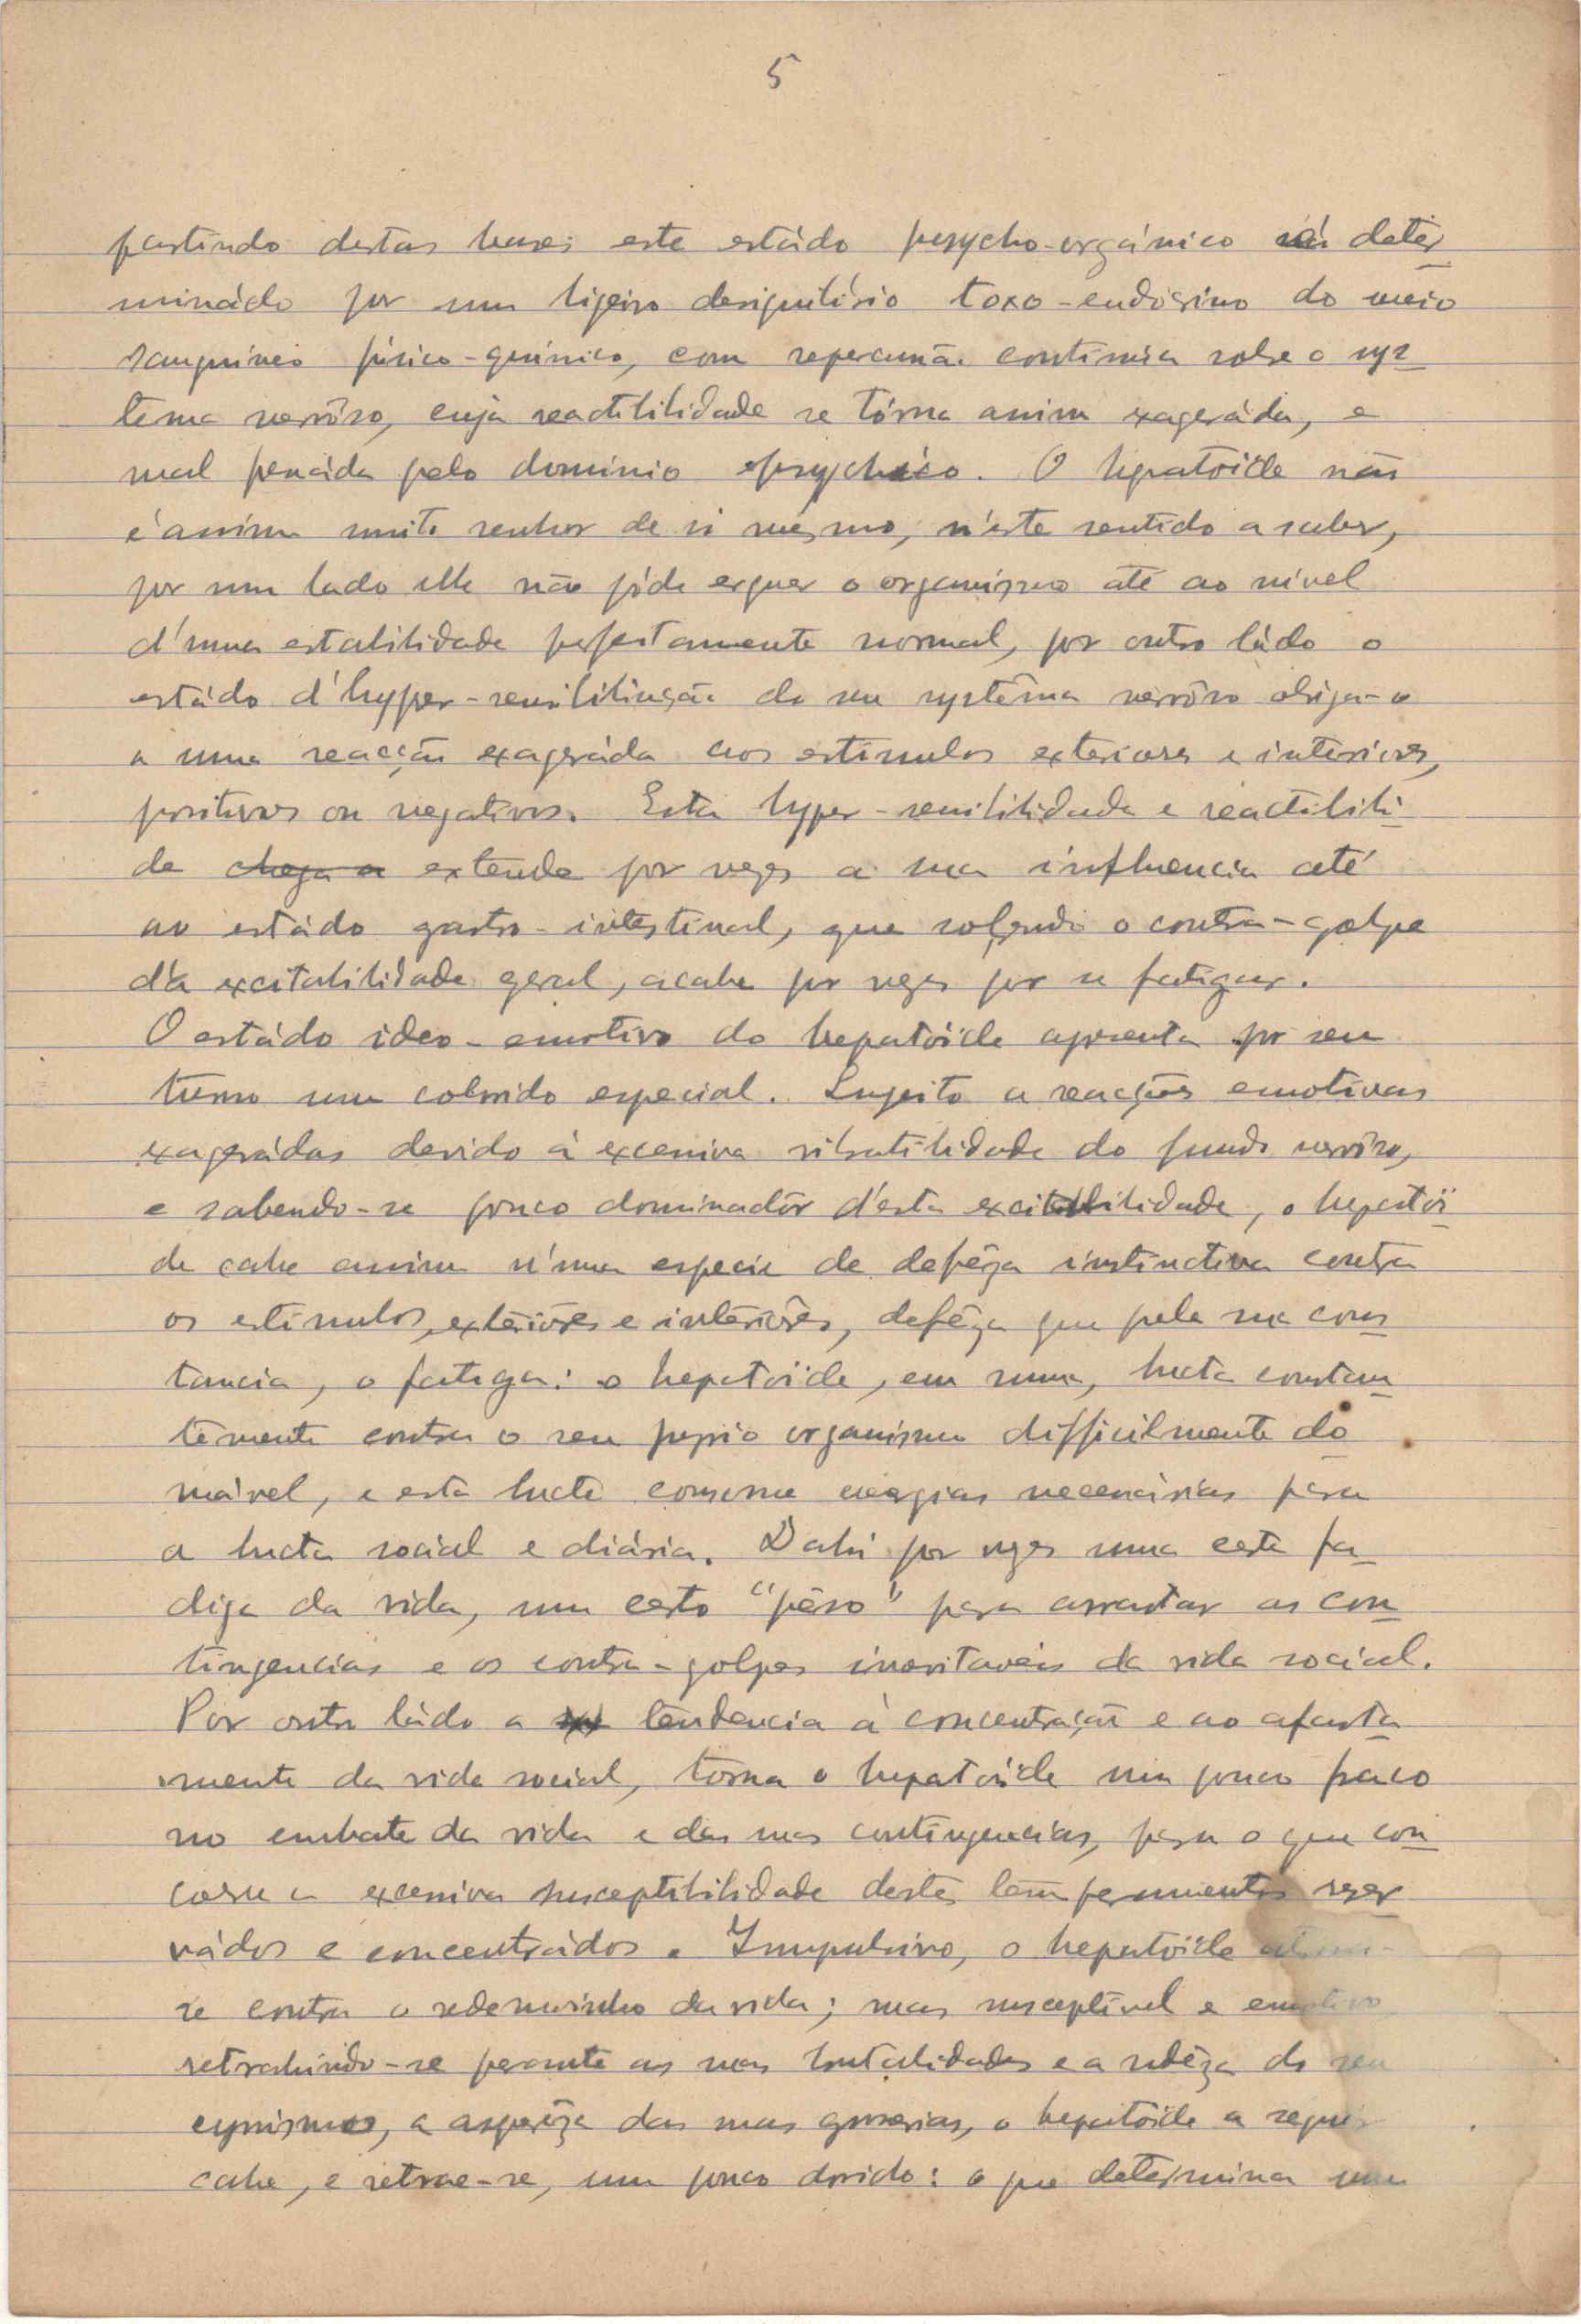 5
partindo destas bases este estádo psycho-orgánico será deter
minádo por um ligeiro desiquilibrio toxo-endócrino do meio
sanguineo fisico-quimico, com repercussão continua sobre o sys
tema nervôso, cuja reactibilidade se tórna assim exageráda, e
mal pensáda pelo dominio psychico. O hepatóide não
é assim muito senhor de si mesmo, n'este sentido a saber,
por um lado elle não póde erguer o organismo até ao nivel
d'uma estabilidade perfeitamente normal, por outro ládo o
estádo d'hyper-sensibilisação do seu systêma nervôso obriga-o
a uma reacção exageráda aos estimulos exteriores e interiores,
positivos ou negativos. Esta hyper-sensibilidade e reactibili
de chega a extende por vezes a sua influencia até
ao estádo gastro-intestinal, que sofrendo o contra-golpe
d'a excitabilidade geral, acaba por vezes por se fatigar.
O estádo ideo-emotivo do hepatóide apresenta por seu
turno um colorido especial. Sugeito a reacções emotivas
exagerádas devido á excessiva vibratilidade do fundo nervôso,
e sabendo-se pouco dominadôr d'esta excitabilidade, o hepatói
de cahe assim n'uma especie de defêza instinctiva contra
os estimulos exterióres e interióres, defêza que pela sua cons
tancia, o fatiga: o hepatóide, em suma, lucta constan
temente contra o seu proprio organismo difficilmente do
mável, e esta lucta consome energias necessárias para
a lucta social e diária. D'ahi por vezes uma certa fa
diga da vida, um certo "pêso" para arrastar as con
tingencias e os contra-golpes inevitaveis da vida social.
Por outro ládo a tendencia á concentração e ao afasta
mento da vida social, torna o hepatóide um pouco fraco
no embate da vida e das suas contingencias, para o que con
corre a excessiva susceptibilidade destes temperamentos rezer
vádos e concentrádos. Impulsivo, o hepatóide
se contra o redemoinho da vida; mas susceptivel e emotivo
retrahindo-se perante as suas brutalidades e a rudêza do seu
cynismo, a asperêza das suas grosserias, o hepatóide a seguir
cahe, e retrae-se, um pouco dorido: o que determina uma